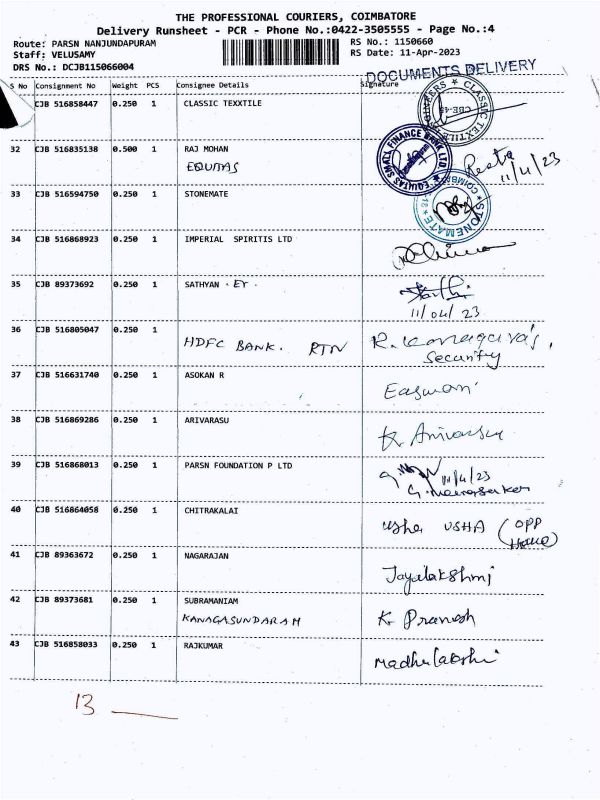 THE PROFESSIONAL COURIERS, COIMBATORE
Delivery Runsheet - PCR - Phone No.:0422-3505555 - Page No.:4
Route: PARSN NANJUNDAPURAM RS No.: 1150660
Staff: VELUSAMY RS Date: 11-Apr-2023
DRS No.: DCJB115066004
DOCUMENTS DELIVERY
S No Consignment No Weight PCS Consignee Details Signature
CJB 516858447 0.250 1 CLASSIC TEXXTILE
CLASSIC TEXTILE CBE-45
32 CJB 516835138 0.500 1 RAJ MOHAN
EQUITAS
EQUITAS SMALL FINANCE BANK LTD. Reeta 11/4/23
33 CJB 516594750 0.250 1 STONEMATE
STONEMATE
34 CJB 516868923 0.250 1 IMPERIAL SPIRITIS LTD
35 CJB 89373692 0.250 1 SATHYAN . EY .
11/04/23
36 CJB 516805047 0.250 1
HDFC BANK. RTN
Security
37 CJB 516631740 0.250 1 ASOKAN R
Easwari
38 CJB 516869286 0.250 1 ARIVARASU
39 CJB 516868013 0.250 1 PARSN FOUNDATION P LTD
11/4/23
40 CJB 516864058 0.250 1 CHITRAKALAI
usha USHA (OPP
House)
41 CJB 89363672 0.250 1 NAGARAJAN
Jayalakshmi
42 CJB 89373681 0.250 1 SUBRAMANIAM
KANAGASUNDARAM K Pranesh
43 CJB 516858033 0.250 1 RAJKUMAR
Madhulakshi
13